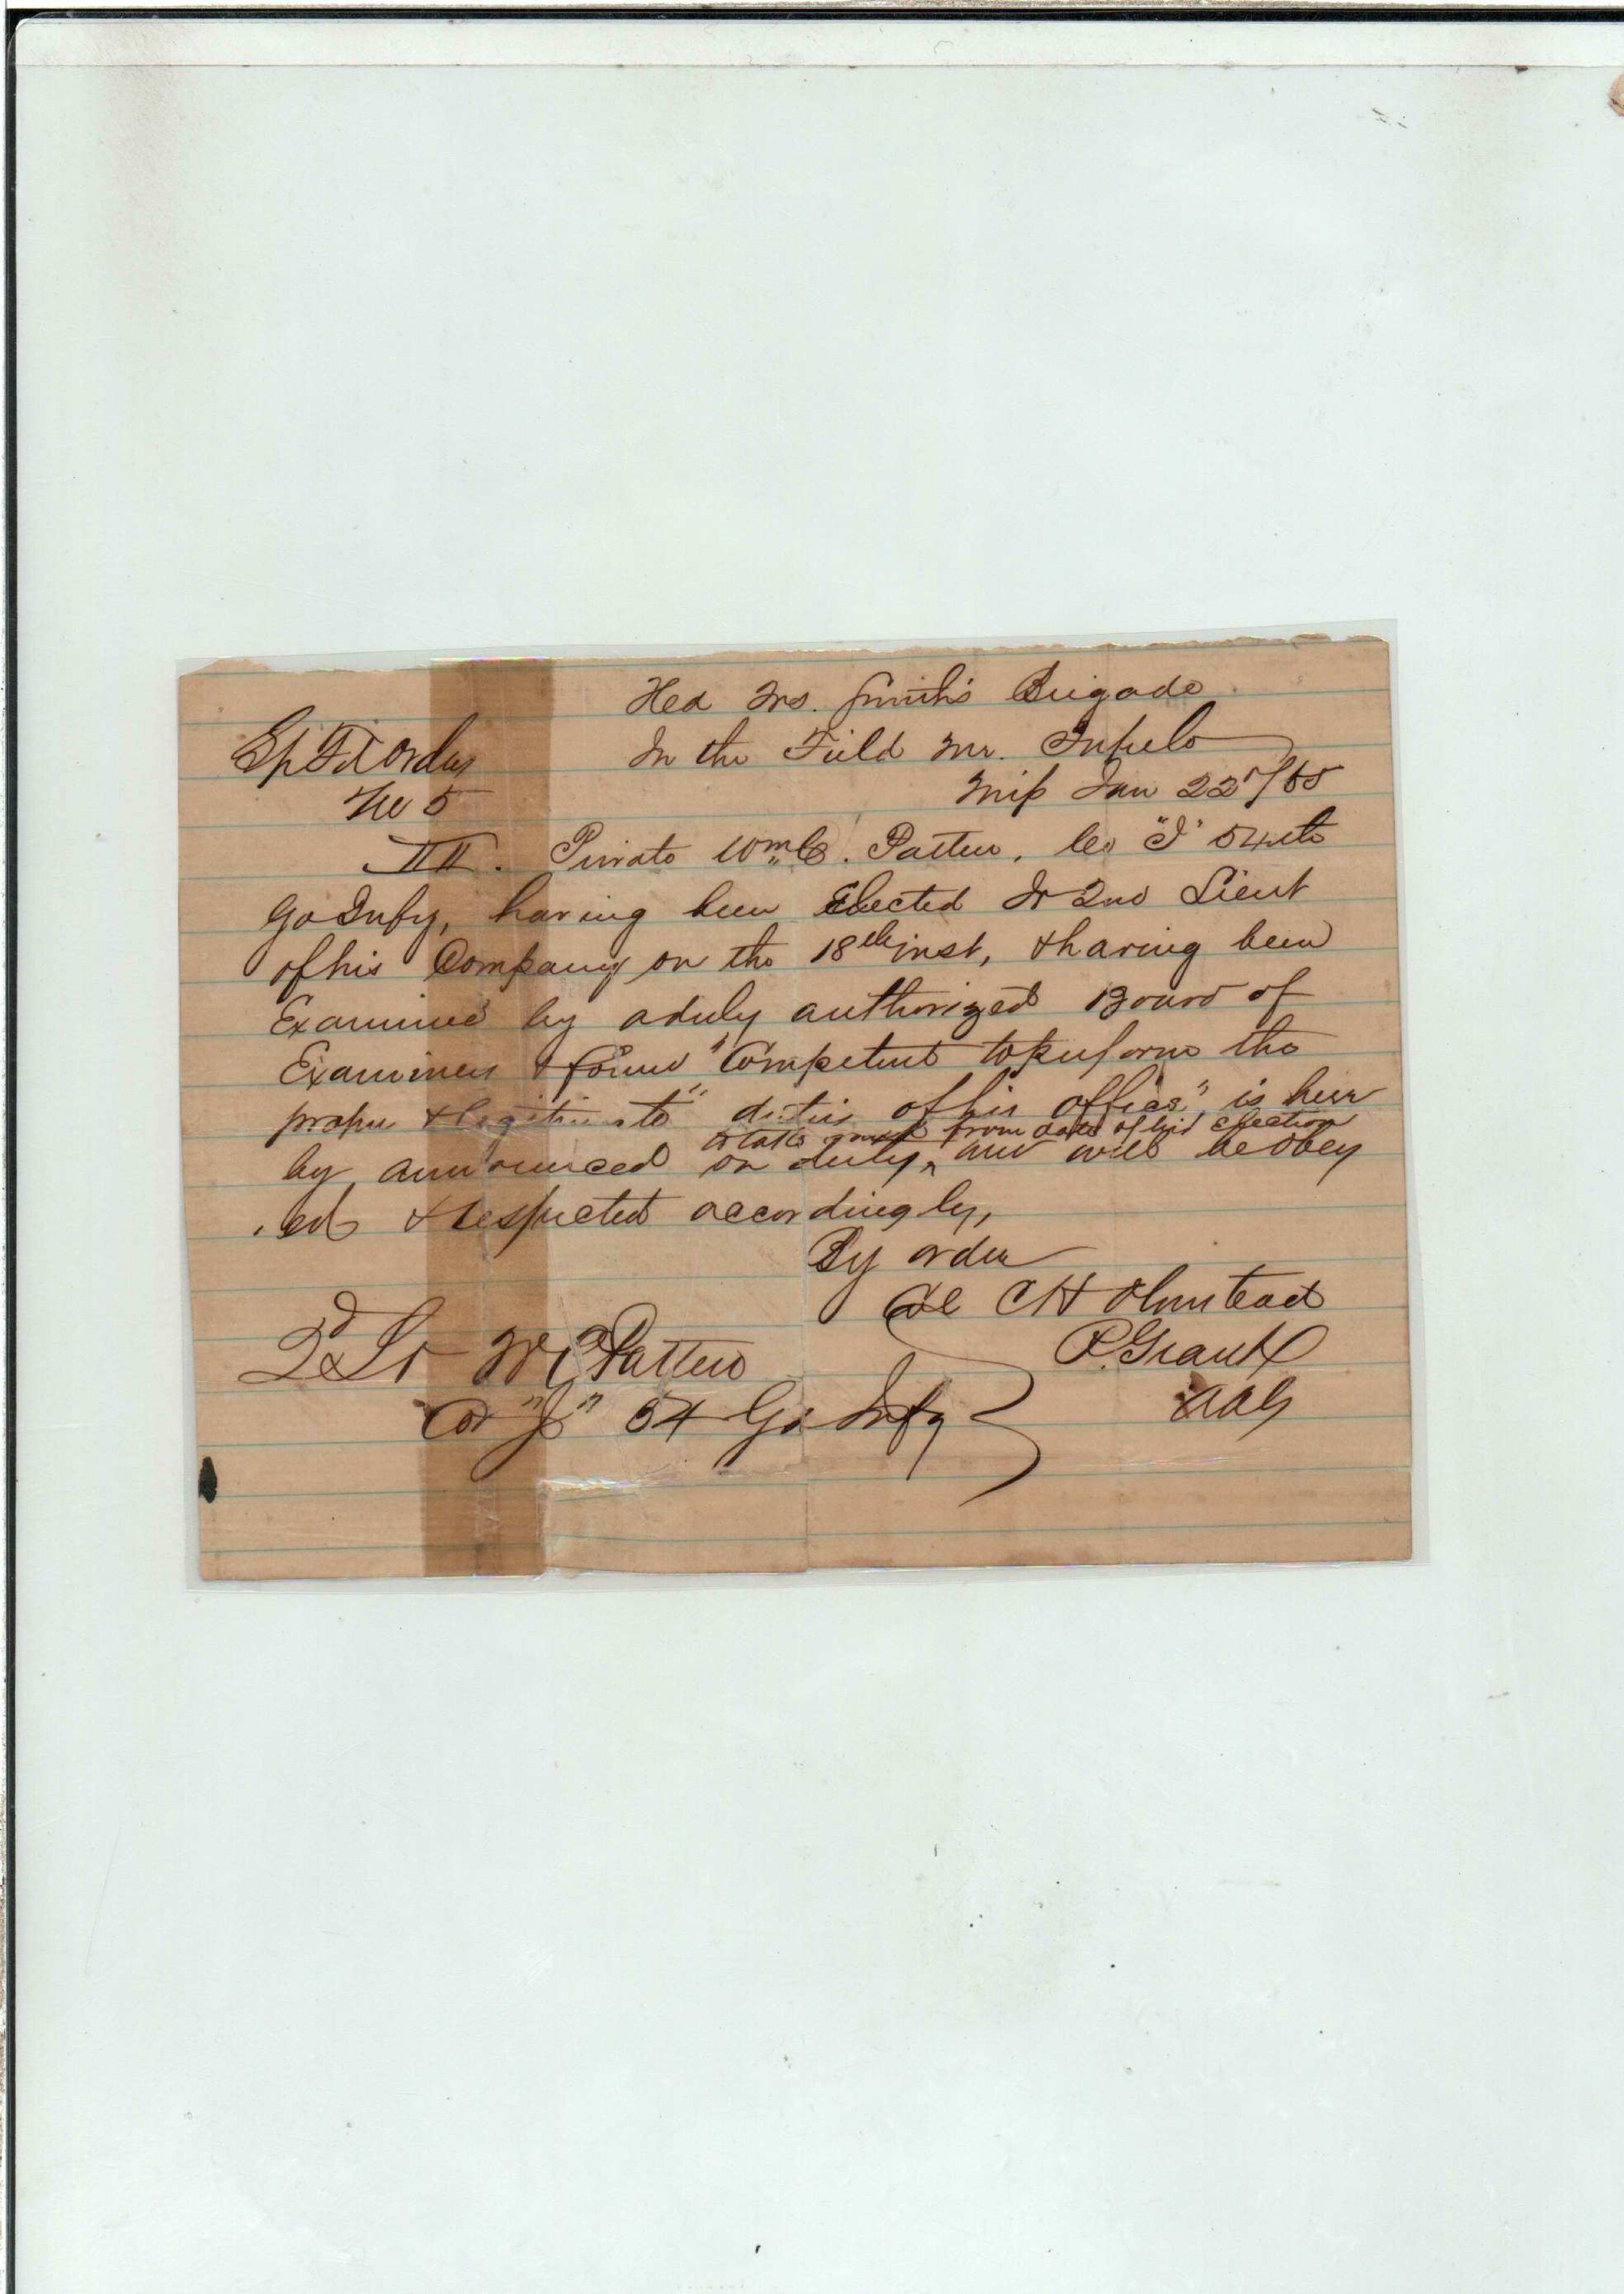 Hed Qrs. Smith's Brigade
In the Field Nr. Tupelo
Miss Jan 22nd/65
Sp Fd Orders
No 5
III. Private Wm C. Patten, Co "I" 54th
Ga Infy, having been Elected Jr 2nd Lieut
of his Company on the 18th inst, & having been
Examined by a duly authorized Board of
Examiners & found "Competent to perform the
proper & legitimate" duties of his office", is here
to take rank from date of his election
by announced on duty, ^ and will be obey
ed & respected accordingly,
By order
Col C H Olmstead
R. Grant
AAG
2d Lt W C Patten
Co "I" 54 Ga Infy